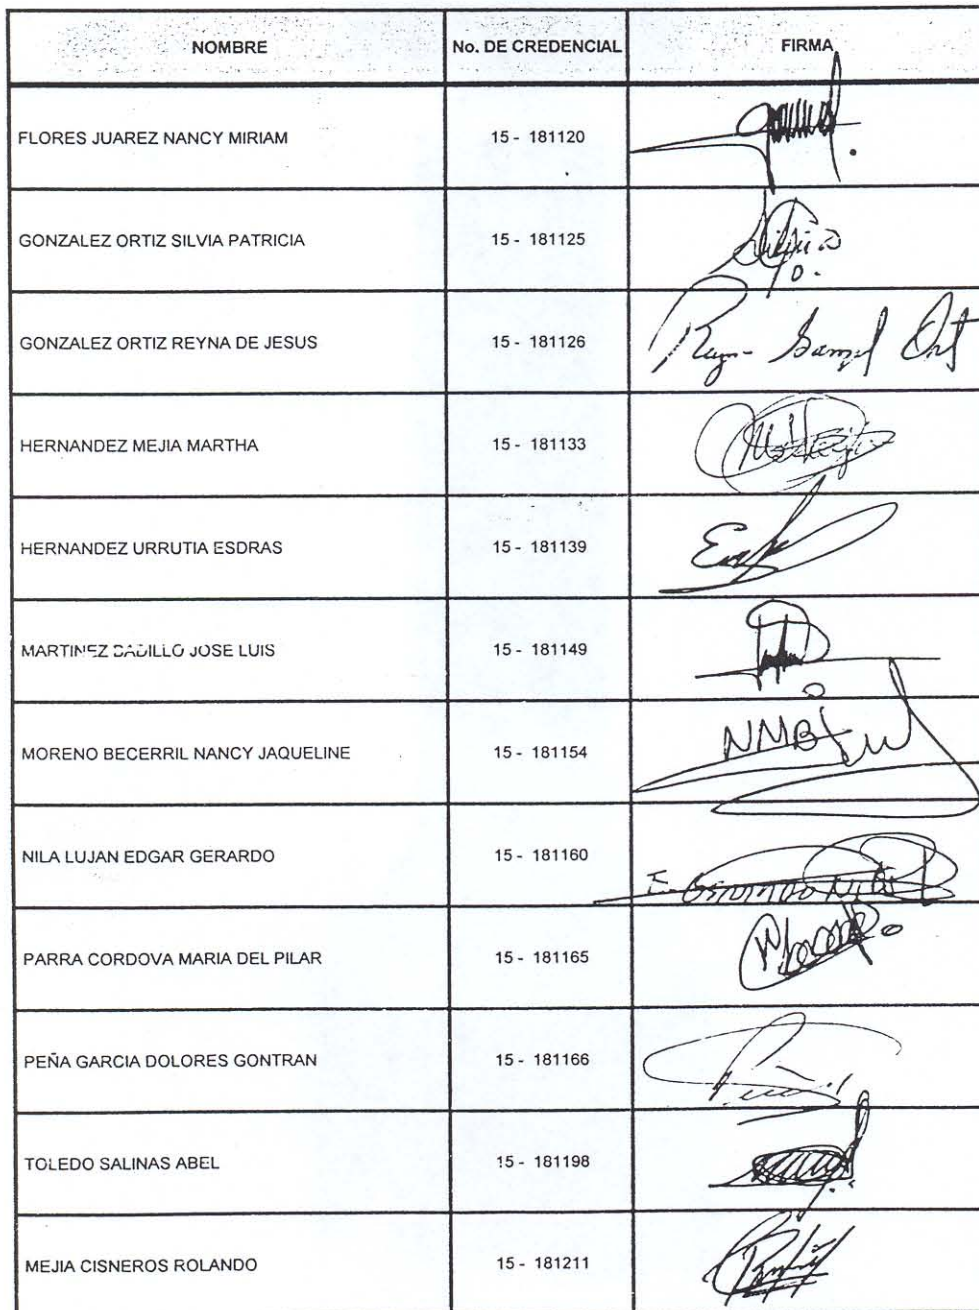 NOMBRE No. DE CREDENCIAL FIRMA
FLORES JUAREZ NANCY MIRIAM 15 - 181120
GONZALEZ ORTIZ SILVIA PATRICIA 15 - 181125
GONZALEZ ORTIZ REYNA DE JESUS 15 - 181126
HERNANDEZ MEJIA MARTHA 15 - 181133
HERNANDEZ URRUTIA ESDRAS 15 - 181139
MARTINEZ BADILLO JOSE LUIS 15 - 181149
MORENO BECERRIL NANCY JAQUELINE 15 - 181154 NMB
NILA LUJAN EDGAR GERARDO 15 - 181160
PARRA CORDOVA MARIA DEL PILAR 15 - 181165
PEÑA GARCIA DOLORES GONTRAN 15 - 181166
TOLEDO SALINAS ABEL 15 - 181198
MEJIA CISNEROS ROLANDO 15 - 181211